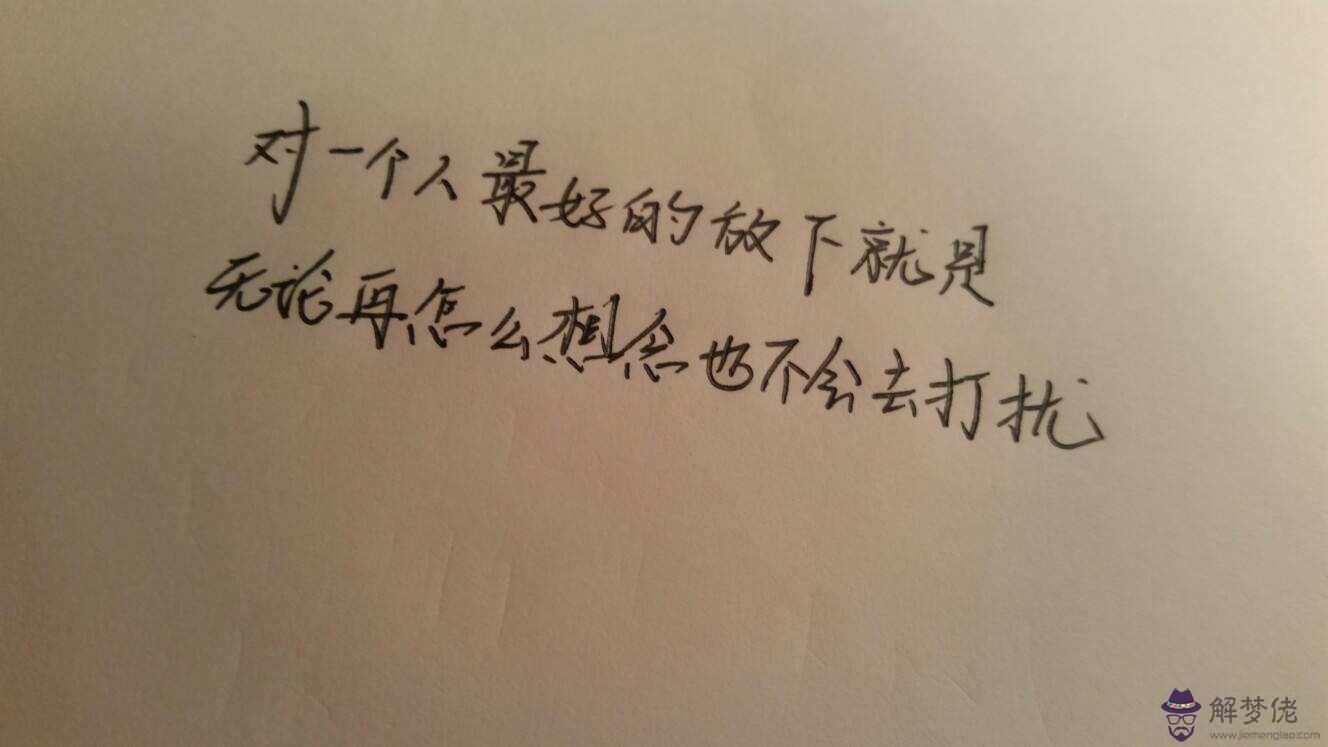 对一个人最好的放下就是
无论再怎么想念也不会去打扰
解梦佬
www.jiemenglao.com